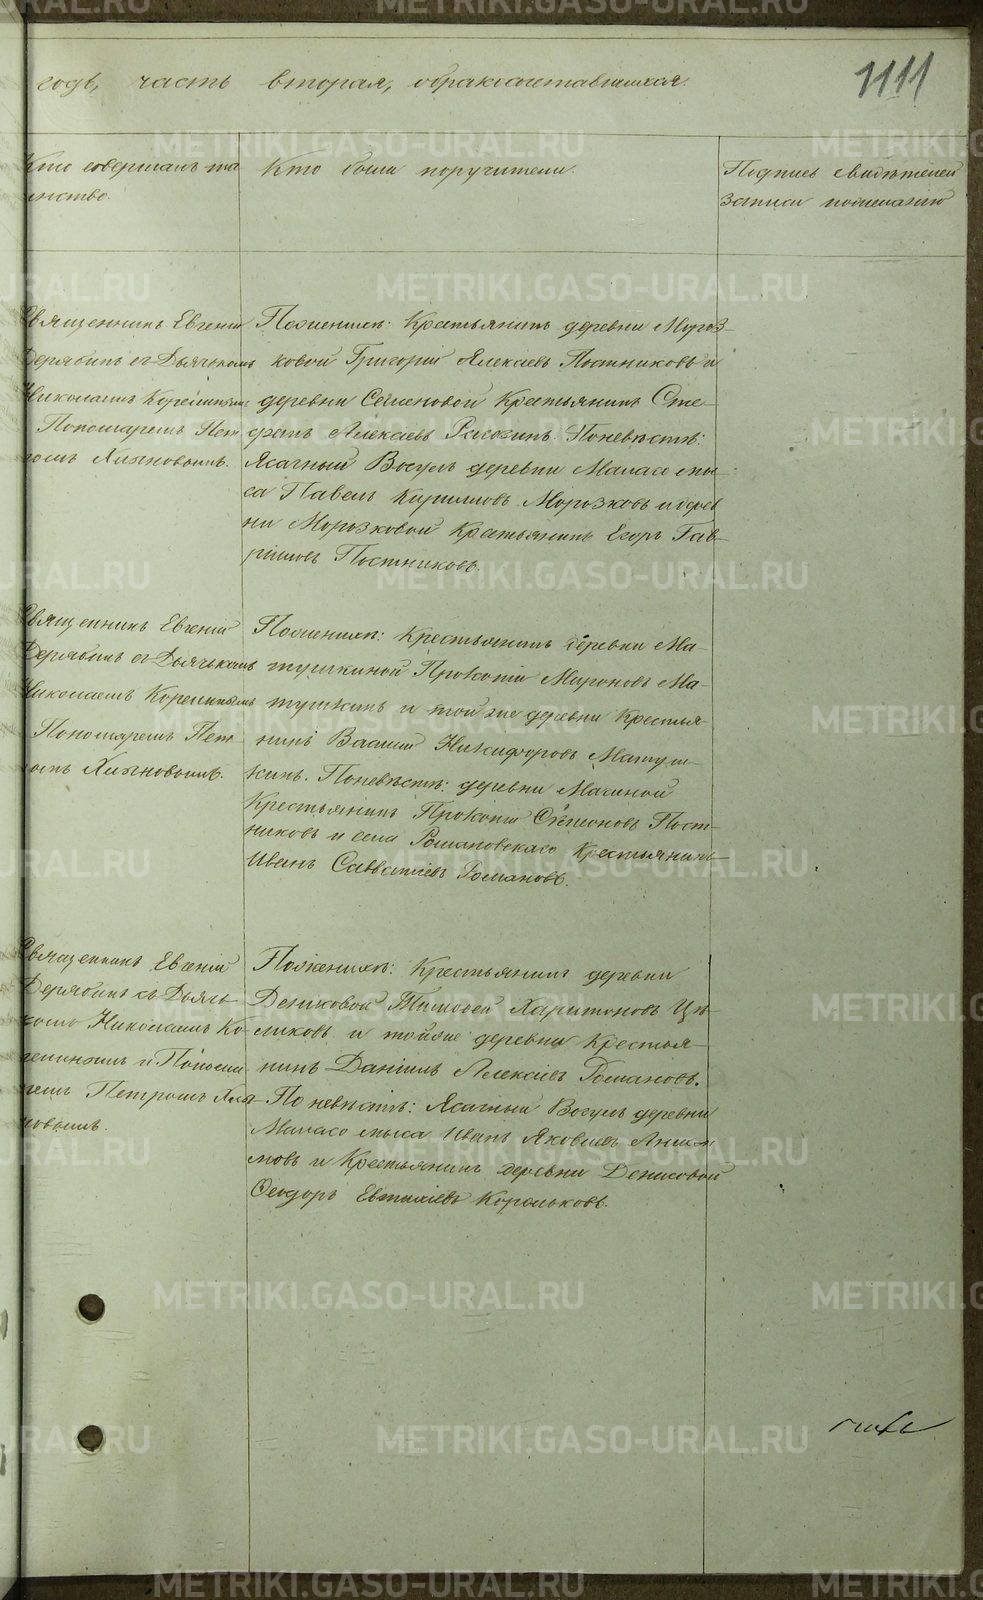 1111
годъ, часть вторая, обракосочетавшихся.
Кто совершалъ та
инство.
Кто были поручители.
Подпись свидѣтелей
записи по желанію
Священникъ Евгеній
Дерябинъ съ Дьячкомъ
Николаемъ
Пономаремъ Пет
ромъ Хляновымъ.
Пожениху: Крестьянинъ деревни Мороз-
ковой Григорій Алексѣевъ Постниковъ и
деревни Семеновой Крестьянинъ Сте-
Алексѣевъ Поневѣстѣ:
Ясачный Вогулъ деревни Малаго мы-
са Павелъ Кириловъ Морозковъ и дерев
ни Морозковой Крестьянинъ Егоръ Гав-
риловъ Постниковъ.
Священникъ Евгеній
Дерябинъ съ Дьячькомъ
Николаемъ
Пономаремъ Пет-
ромъ Хляновымъ.
Пожениху: Крестьянинъ деревни Ма-
тушкиной Прокопій Мироновъ Ма-
тушкинъ и той же деревни Крестья-
нинъ Василій Никифоровъ Матуш-
кинъ. Поневѣстѣ: деревни Махиной
Крестьянинъ Прокопій Степановъ Пост-
никовъ и села Романовскаго Крестьянинъ
Иванъ Савватіевъ Романовъ.
Священникъ Евгеній
Дерябинъ съ Дьяч-
комъ Николаемъ Ко-
и Понома
ремъ Петромъ Хля-
новымъ.
Пожениху: Крестьянинъ деревни
Денисовой Тимофей Харитоновъ Цѣ-
ликовъ и тойже деревни Крестья-
нинъ Даніилъ Алексѣевъ Романовъ.
Поневѣстѣ: Ясачный Вогулъ деревни
Малаго мыса Иванъ Яковлевъ
мовъ и Крестьянинъ деревни Денисовой
Ѳеодоръ Евтихіевъ Корольковъ.
METRIKI.GASO-URAL.RU